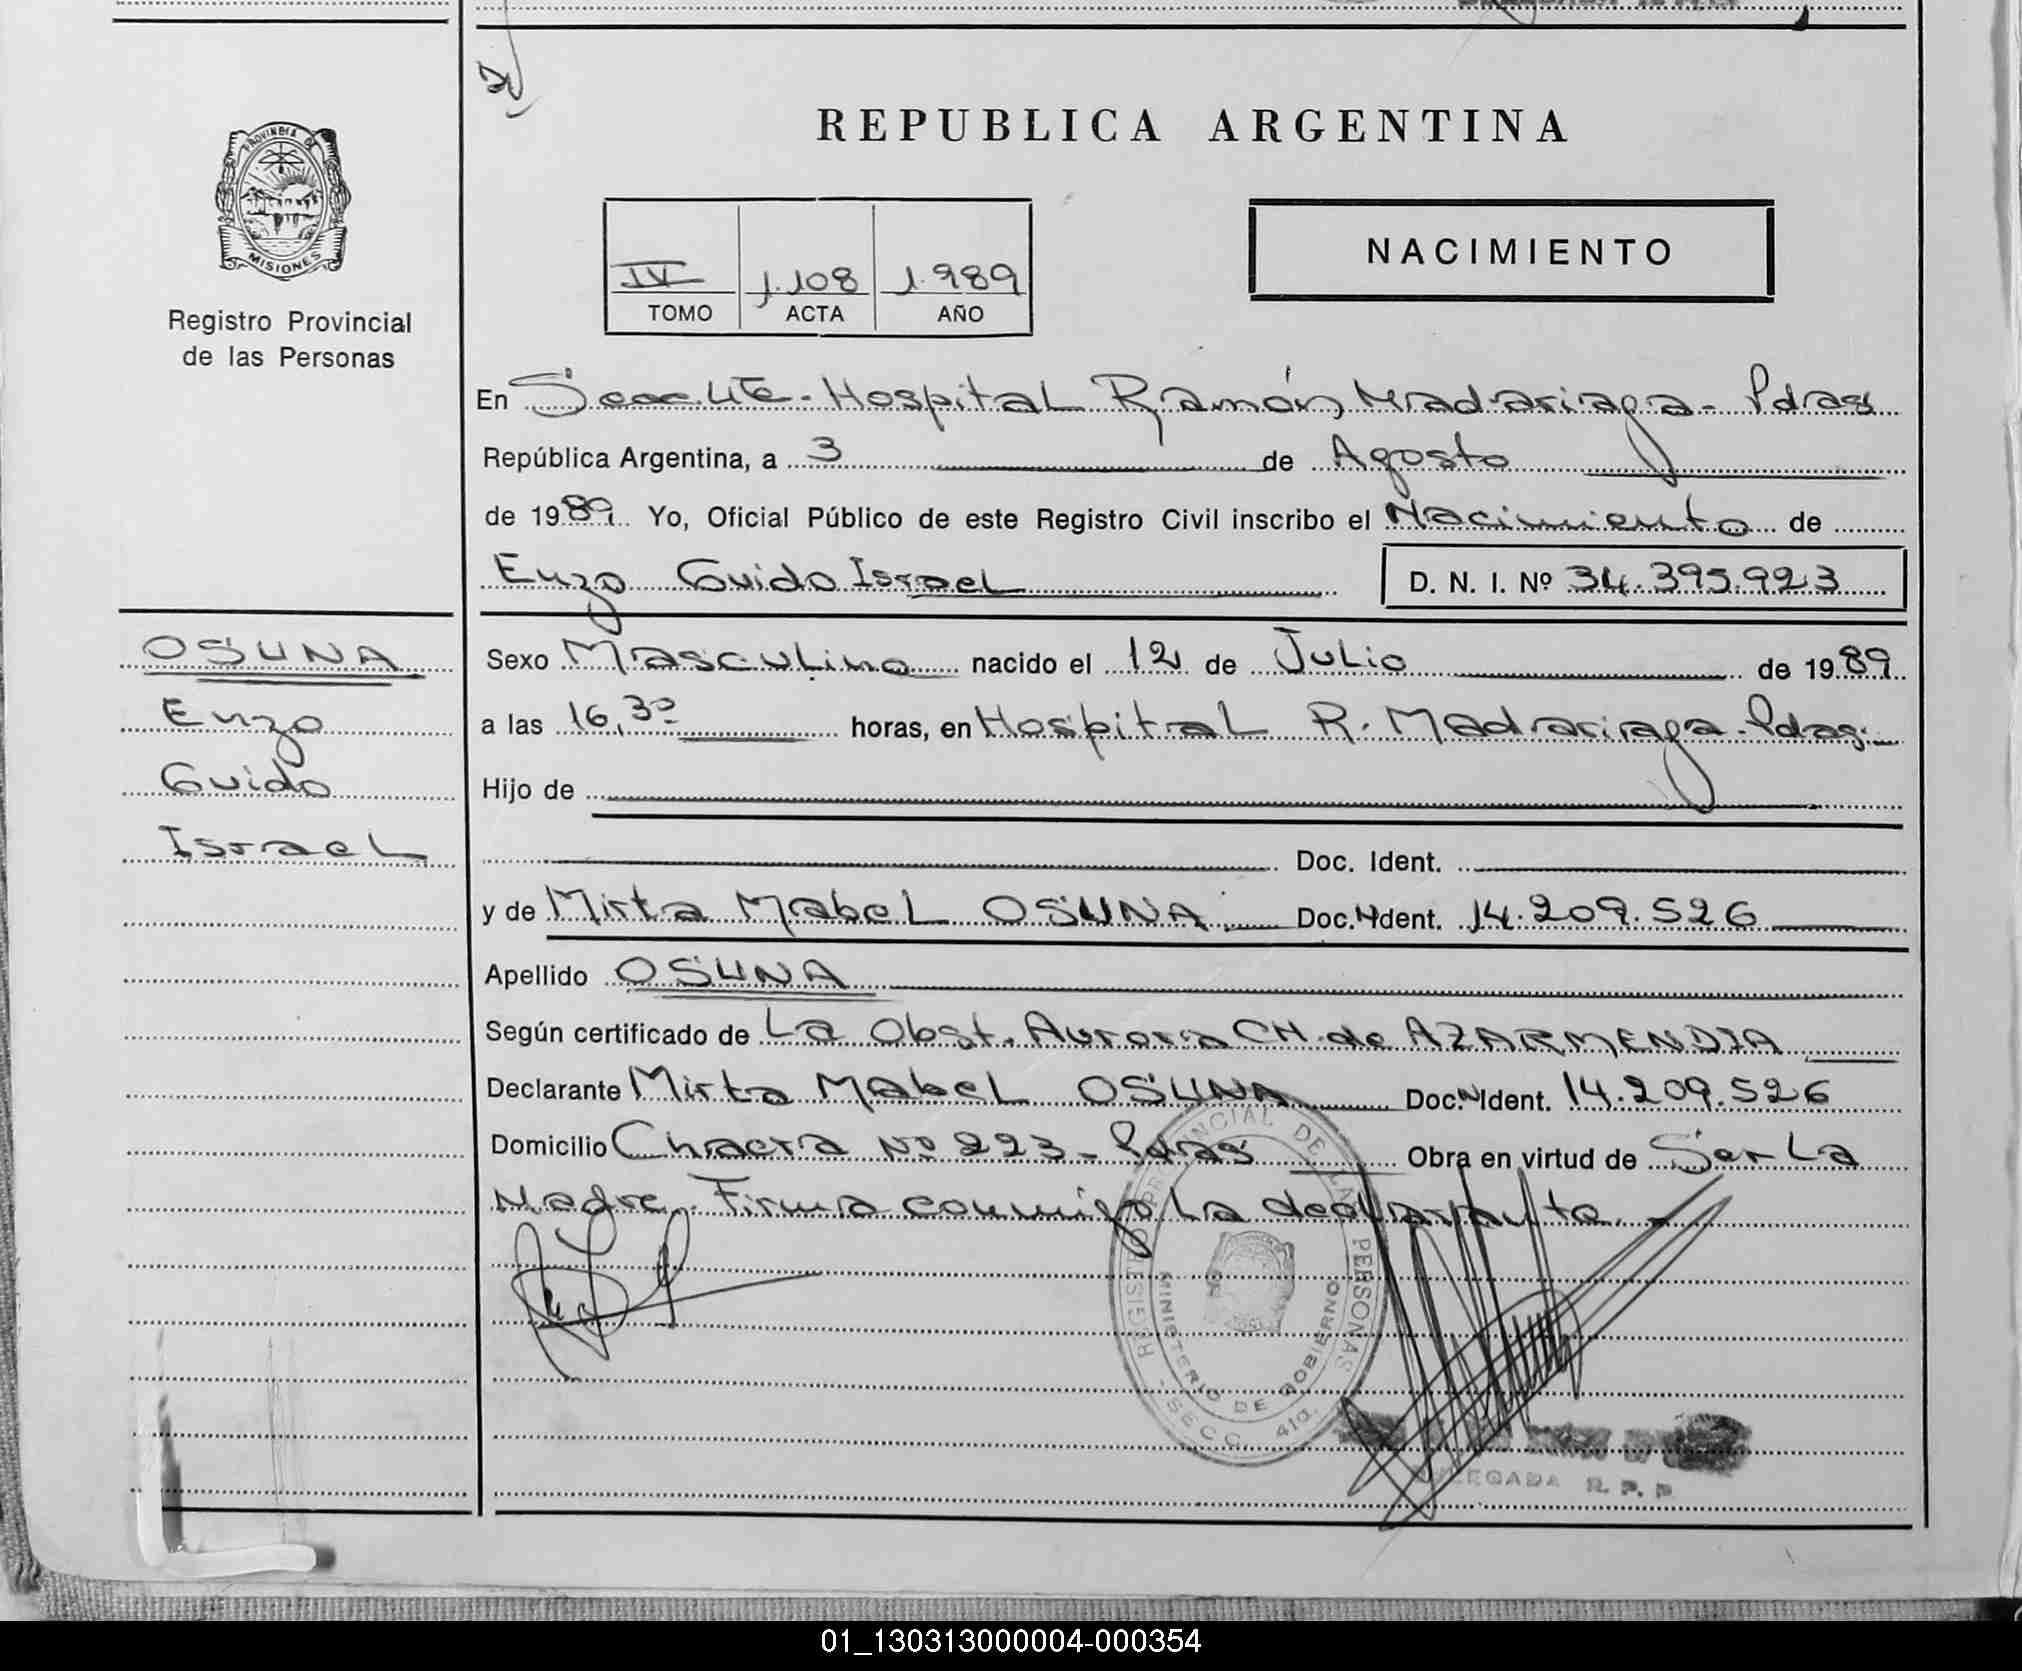 REPUBLICA ARGENTINA
PROVINCIA DE
MISIONES
Registro Provincial
de las Personas
NACIMIENTO
IV 1.108 1.989
TOMO ACTA AÑO
En Hospital Ramón Madariaga - Pdas
República Argentina, a 3 de Agosto
de 1989. Yo, Oficial Público de este Registro Civil inscribo el Nacimiento de
Enzo Guido Israel D. N. I. Nº 34.395.923
OSUNA
Enzo
Guido
Israel
Sexo Masculino nacido el 12 de Julio de 1989
a las 16,30 horas, en Hospital R. Madariaga - Pdas.
Hijo de
Doc. Ident.
y de Mirta Mabel OSUNA Doc. Ident. 14.209.526
Apellido OSUNA
Según certificado de La Obst. Aurora CH. de AZARMENDIA
Declarante Mirta Mabel OSUNA Doc. Ident. 14.209.526
Domicilio Chacra Nº 223 - Pdas Obra en virtud de Ser La
Madre. Firma conmigo La declarante. -
REGISTRO PROVINCIAL DE LAS PERSONAS
MINISTERIO DE GOBIERNO
SECC. 41a.
DELEGADA R. P. P.
01_130313000004-000354